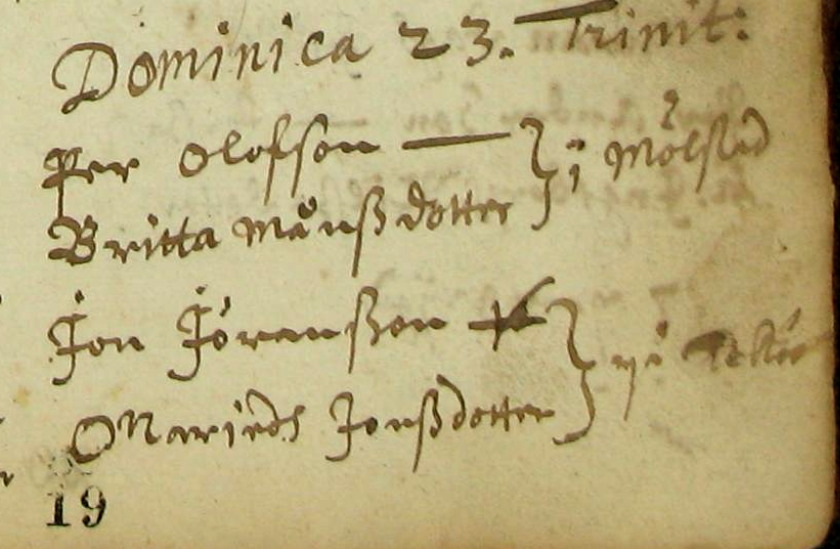 Dominica 23. Trinit:
Per Olofson — } i Mölstad
Britta Månßdotter
Jon Jöranßon }
Jonßdotter
19